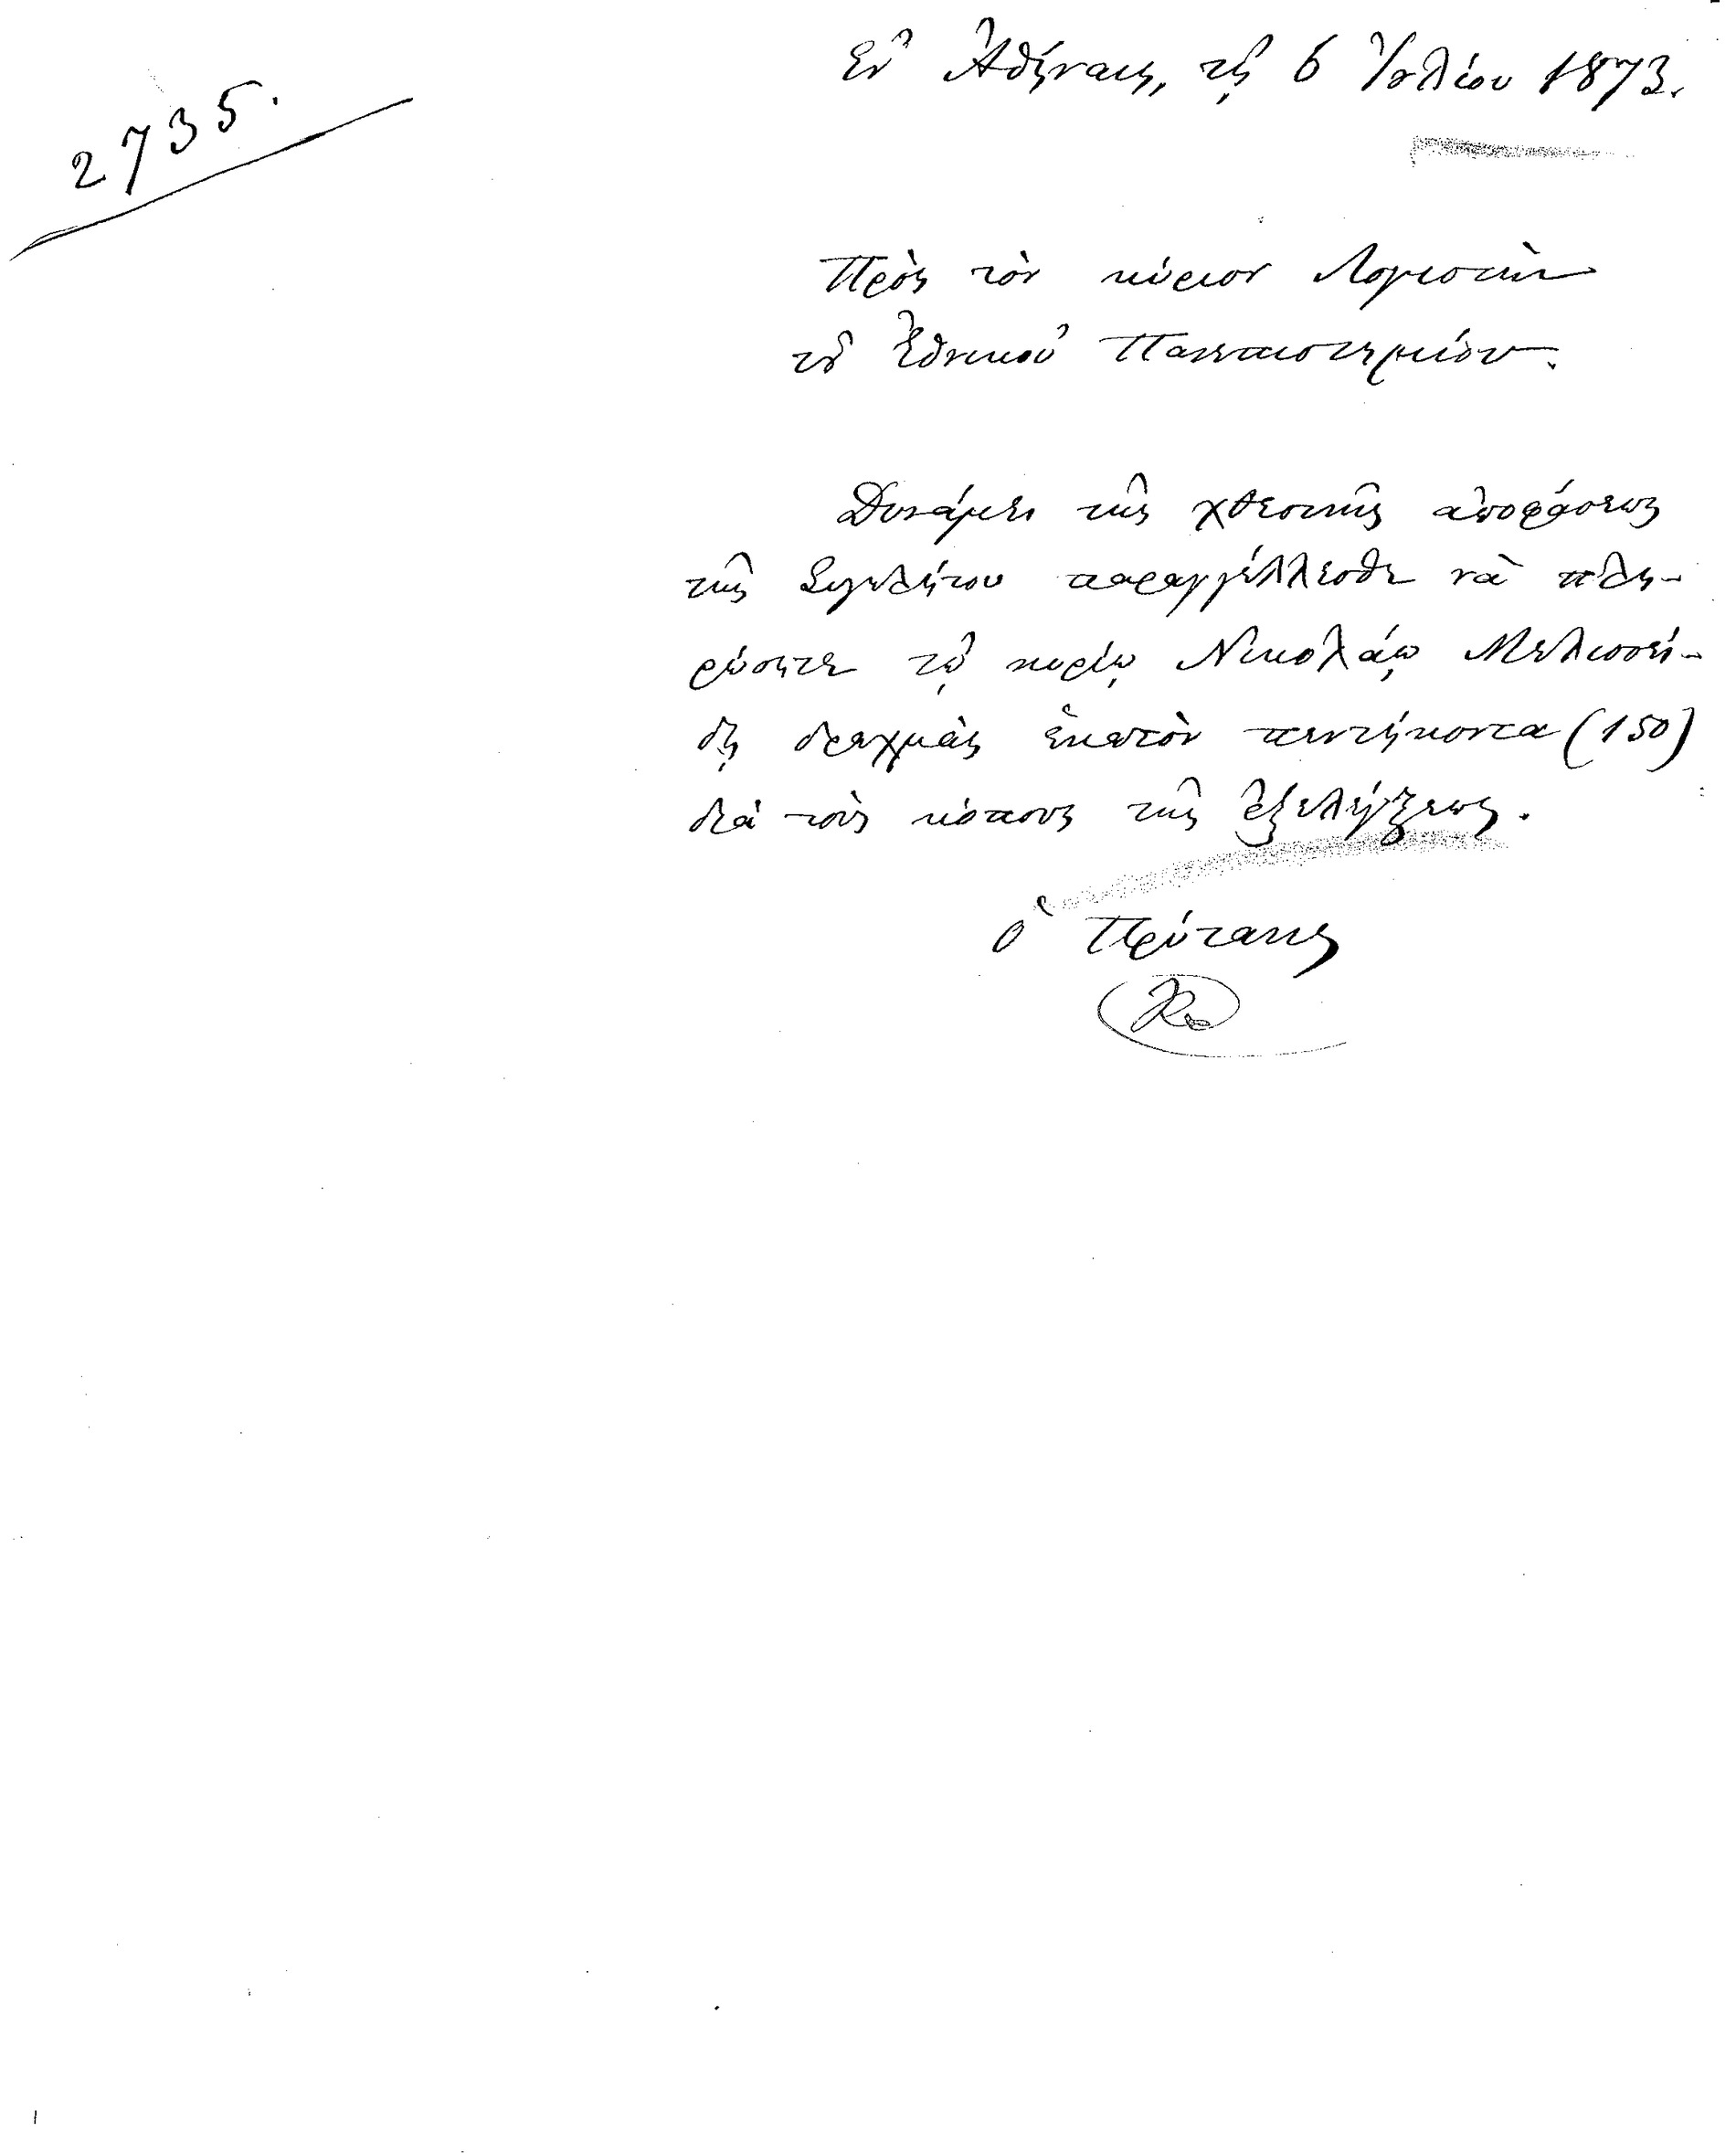 2735.
Ἐν Ἀθήναις, τῇ 6 Ἰουλίου 1873.
Πρὸς τὸν κύριον Λογιστὴν
τοῦ Ἐθνικοῦ Πανεπιστημίου.
Δυνάμει τῆς χθεσινῆς ἀποφάσεως
τῆς Συγκλήτου παραγγέλλεσθε νὰ πλη-
ρώσητε τῷ κυρίῳ Νικολάῳ Μελισσεί-
δῃ δραχμὰς ἑκατὸν πεντήκοντα (150)
διὰ τοὺς κόπους τῆς ἐξελέγξεως.
Ὁ Πρύτανις